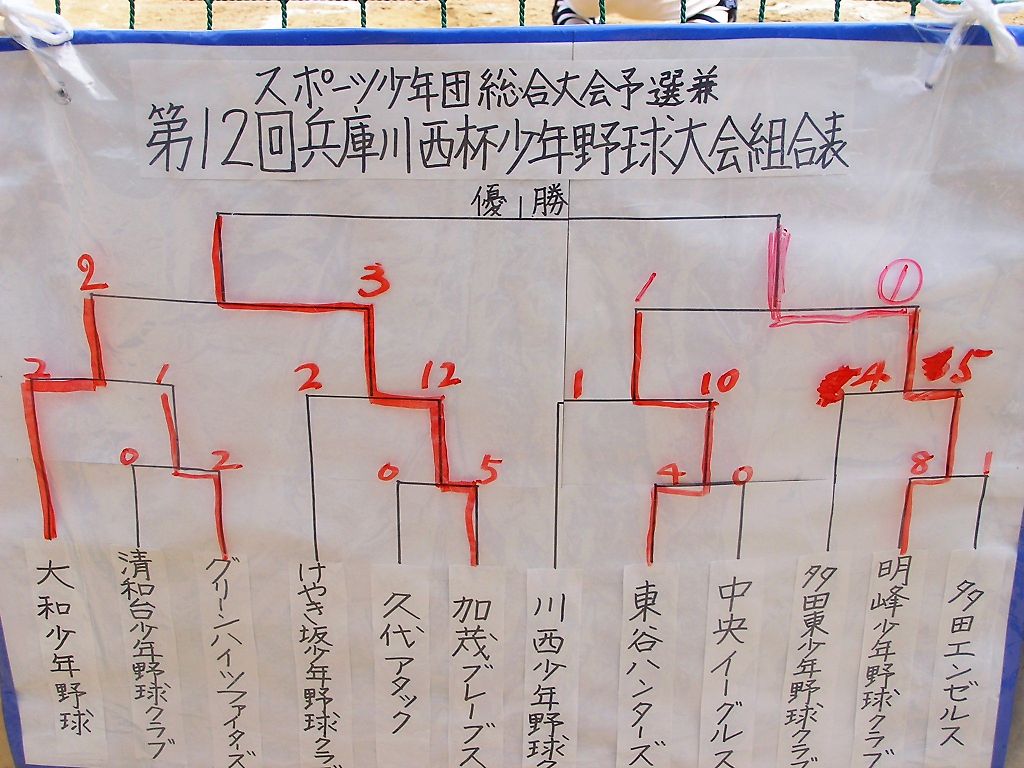 スポーツ少年団総合大会予選兼
第12回兵庫川西杯少年野球大会組合表
優勝
2
3
1
①
2
1
2
12
1
10
4
5
0
2
0
5
4
0
8
1
大和少年野球
清和台少年野球クラブ
グリーンハイツファイターズ
けやき坂少年野球クラ
久代アタック
加茂ブレーブス
川西少年野球
東谷ハンターズ
中央イーグルス
多田東少年野球クラブ
明峰少年野球クラブ
多田エンゼルス